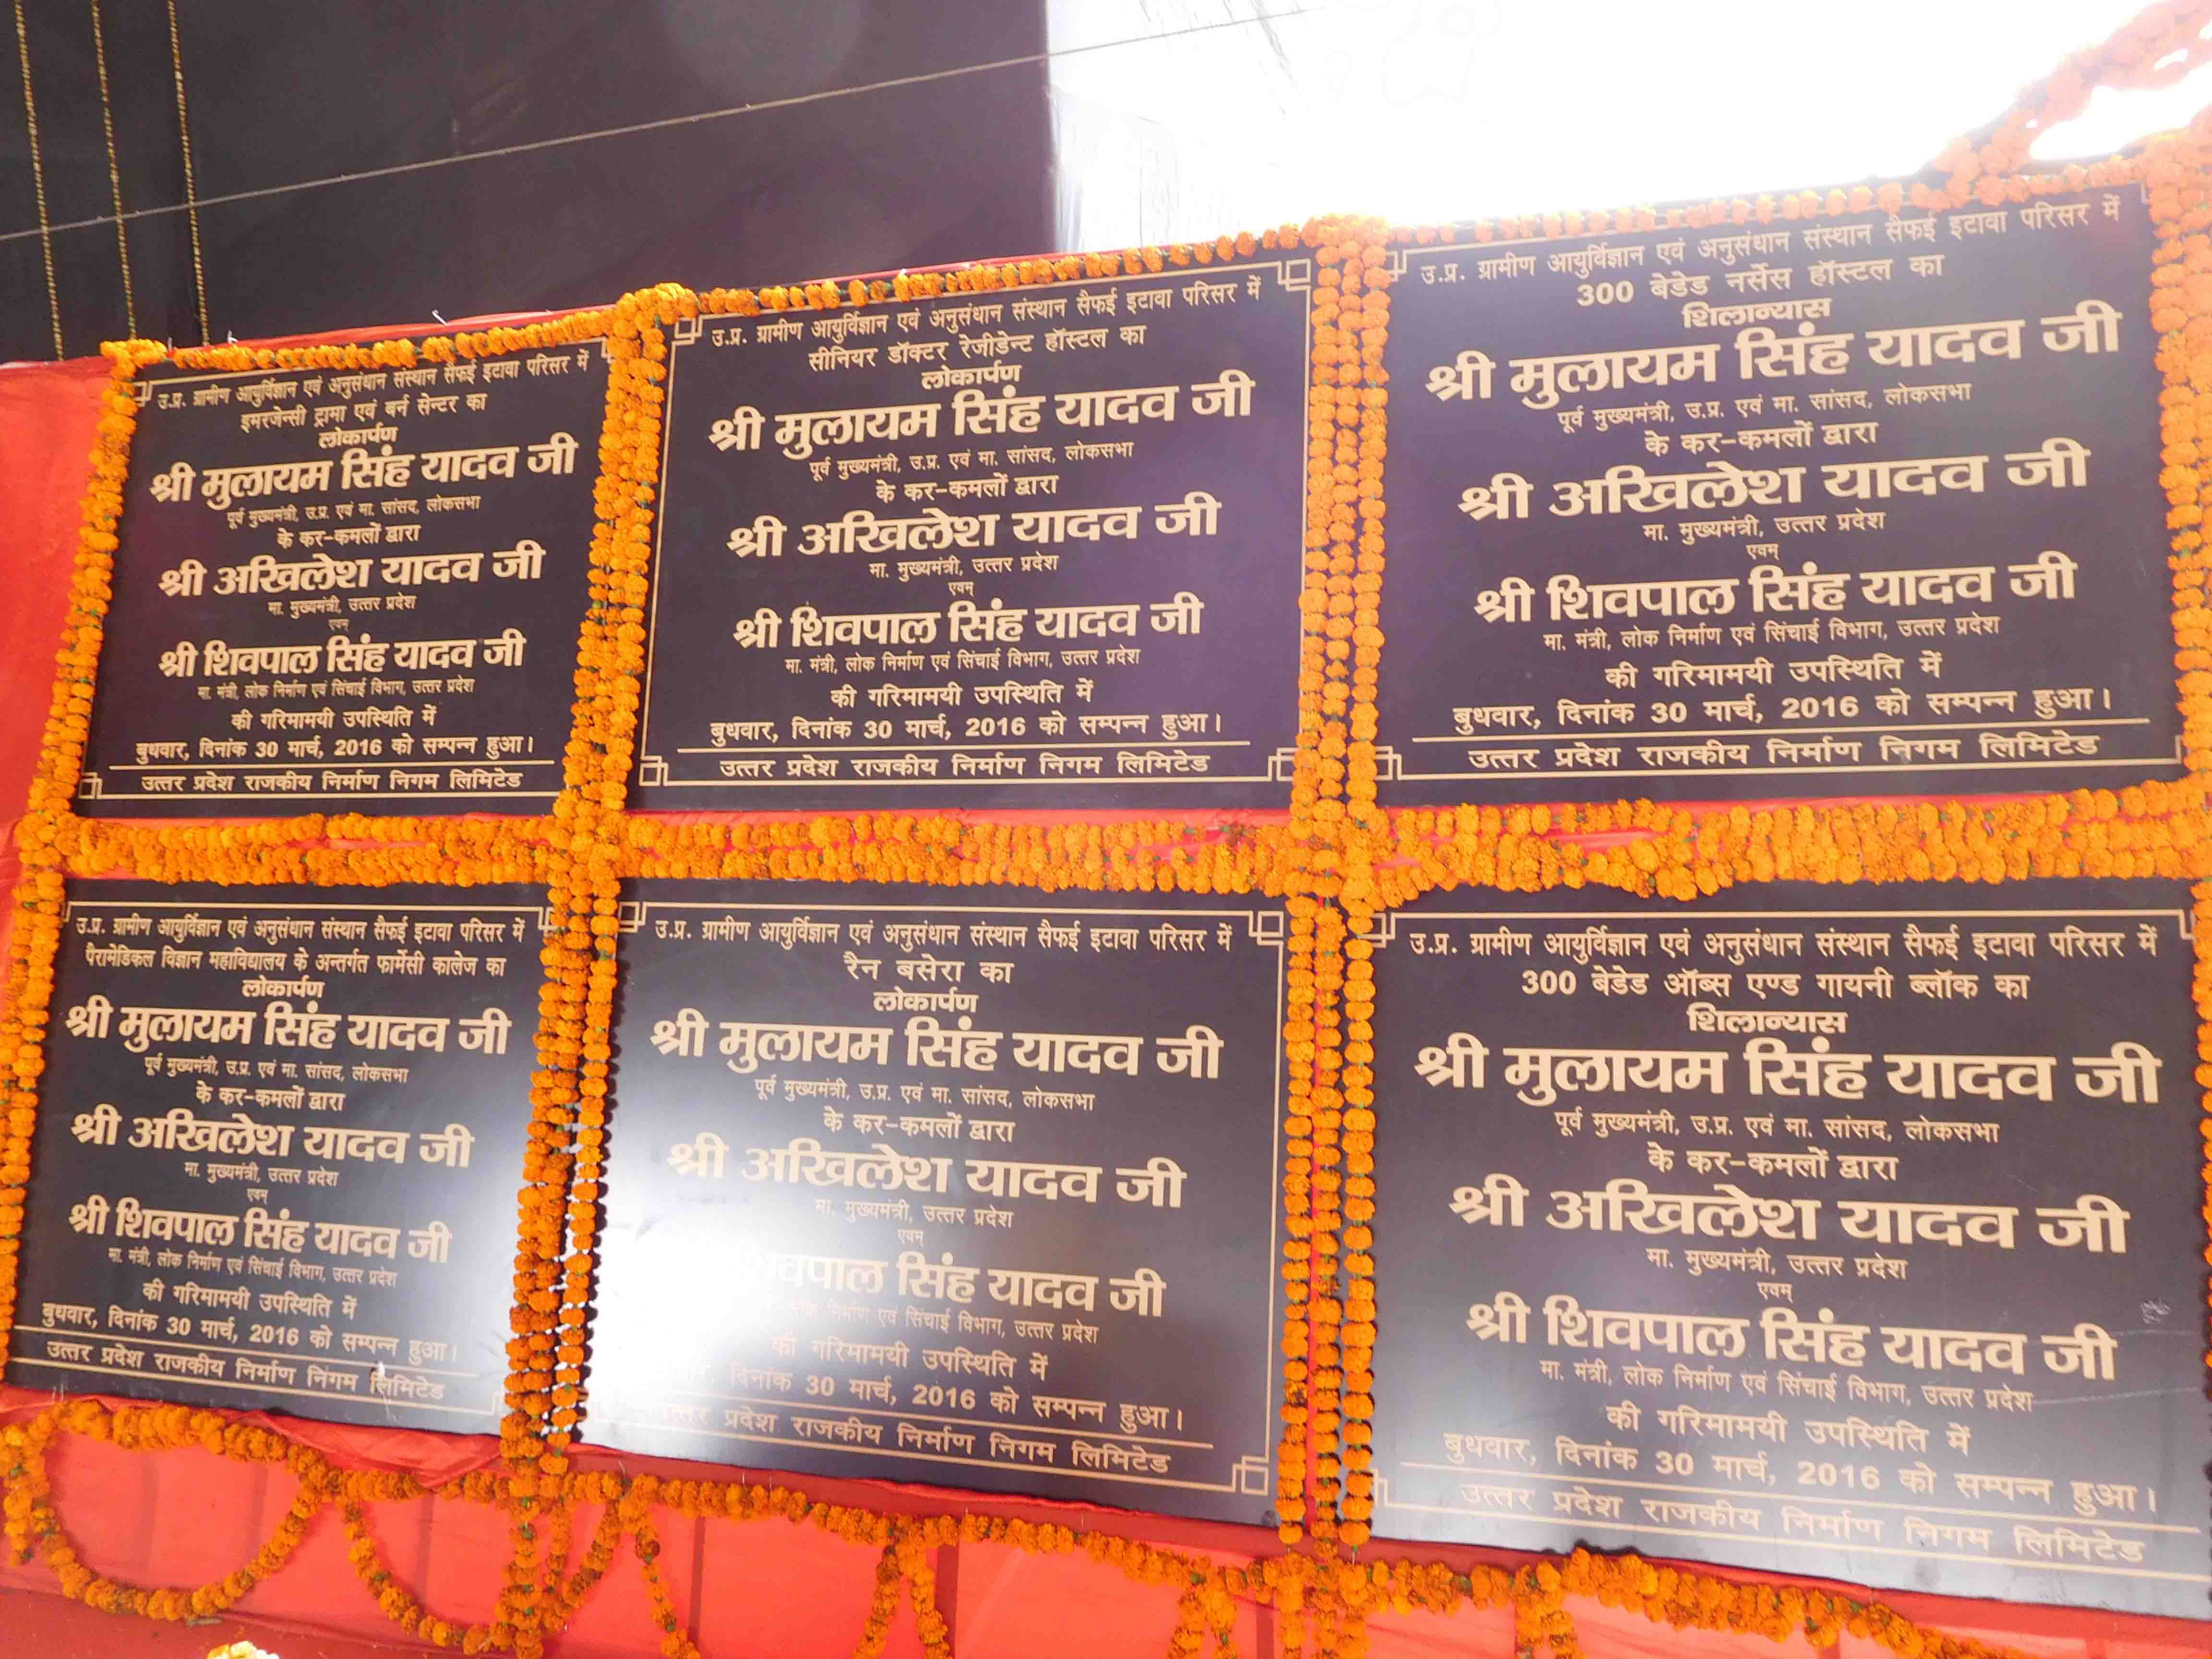 उ.प्र. ग्रामीण आयुर्विज्ञान एवं अनुसंधान संस्थान सैफई इटावा परिसर में
इमरजेन्सी ट्रामा एवं बर्न सेन्टर का
लोकार्पण
श्री मुलायम सिंह यादव जी
पूर्व मुख्यमंत्री, उ.प्र. एवं मा. सांसद, लोकसभा
के कर-कमलों द्वारा
श्री अखिलेश यादव जी
मा. मुख्यमंत्री, उत्तर प्रदेश
एवम्
श्री शिवपाल सिंह यादव जी
मा. मंत्री, लोक निर्माण एवं सिंचाई विभाग, उत्तर प्रदेश
की गरिमामयी उपस्थिति में
बुधवार, दिनांक 30 मार्च, 2016 को सम्पन्न हुआ।
उत्तर प्रदेश राजकीय निर्माण निगम लिमिटेड
उ.प्र. ग्रामीण आयुर्विज्ञान एवं अनुसंधान संस्थान सैफई इटावा परिसर में
सीनियर डॉक्टर रेजीडेन्ट हॉस्टल का
लोकार्पण
श्री मुलायम सिंह यादव जी
पूर्व मुख्यमंत्री, उ.प्र. एवं मा. सांसद, लोकसभा
के कर-कमलों द्वारा
श्री अखिलेश यादव जी
मा. मुख्यमंत्री, उत्तर प्रदेश
एवम्
श्री शिवपाल सिंह यादव जी
मा. मंत्री, लोक निर्माण एवं सिंचाई विभाग, उत्तर प्रदेश
की गरिमामयी उपस्थिति में
बुधवार, दिनांक 30 मार्च, 2016 को सम्पन्न हुआ।
उत्तर प्रदेश राजकीय निर्माण निगम लिमिटेड
उ.प्र. ग्रामीण आयुर्विज्ञान एवं अनुसंधान संस्थान सैफई इटावा परिसर में
300 बेडेड नर्सेस हॉस्टल का
शिलान्यास
श्री मुलायम सिंह यादव जी
पूर्व मुख्यमंत्री, उ.प्र. एवं मा. सांसद, लोकसभा
के कर-कमलों द्वारा
श्री अखिलेश यादव जी
मा. मुख्यमंत्री, उत्तर प्रदेश
एवम्
श्री शिवपाल सिंह यादव जी
मा. मंत्री, लोक निर्माण एवं सिंचाई विभाग, उत्तर प्रदेश
की गरिमामयी उपस्थिति में
बुधवार, दिनांक 30 मार्च, 2016 को सम्पन्न हुआ।
उत्तर प्रदेश राजकीय निर्माण निगम लिमिटेड
उ.प्र. ग्रामीण आयुर्विज्ञान एवं अनुसंधान संस्थान सैफई इटावा परिसर में
पैरामेडिकल विज्ञान महाविद्यालय के अन्तर्गत फार्मेसी कालेज का
लोकार्पण
श्री मुलायम सिंह यादव जी
पूर्व मुख्यमंत्री, उ.प्र. एवं मा. सांसद, लोकसभा
के कर-कमलों द्वारा
श्री अखिलेश यादव जी
मा. मुख्यमंत्री, उत्तर प्रदेश
एवम्
श्री शिवपाल सिंह यादव जी
मा. मंत्री, लोक निर्माण एवं सिंचाई विभाग, उत्तर प्रदेश
की गरिमामयी उपस्थिति में
बुधवार, दिनांक 30 मार्च, 2016 को सम्पन्न हुआ।
उत्तर प्रदेश राजकीय निर्माण निगम लिमिटेड
उ.प्र. ग्रामीण आयुर्विज्ञान एवं अनुसंधान संस्थान सैफई इटावा परिसर में
रैन बसेरा का
लोकार्पण
श्री मुलायम सिंह यादव जी
पूर्व मुख्यमंत्री, उ.प्र. एवं मा. सांसद, लोकसभा
के कर-कमलों द्वारा
श्री अखिलेश यादव जी
मा. मुख्यमंत्री, उत्तर प्रदेश
एवम्
सिंह यादव जी
निर्माण एवं सिंचाई विभाग, उत्तर प्रदेश
की गरिमामयी उपस्थिति में
दिनांक 30 मार्च, 2016 को सम्पन्न हुआ।
उत्तर प्रदेश राजकीय निर्माण निगम लिमिटेड
उ.प्र. ग्रामीण आयुर्विज्ञान एवं अनुसंधान संस्थान सैफई इटावा परिसर में
300 बेडेड ऑब्स एण्ड गायनी ब्लॉक का
शिलान्यास
श्री मुलायम सिंह यादव जी
पूर्व मुख्यमंत्री, उ.प्र. एवं मा. सांसद, लोकसभा
के कर-कमलों द्वारा
श्री अखिलेश यादव जी
मा. मुख्यमंत्री, उत्तर प्रदेश
एवम्
श्री शिवपाल सिंह यादव जी
मा. मंत्री, लोक निर्माण एवं सिंचाई विभाग, उत्तर प्रदेश
की गरिमामयी उपस्थिति में
बुधवार, दिनांक 30 मार्च, 2016 को सम्पन्न हुआ।
उत्तर प्रदेश राजकीय निर्माण निगम लिमिटेड